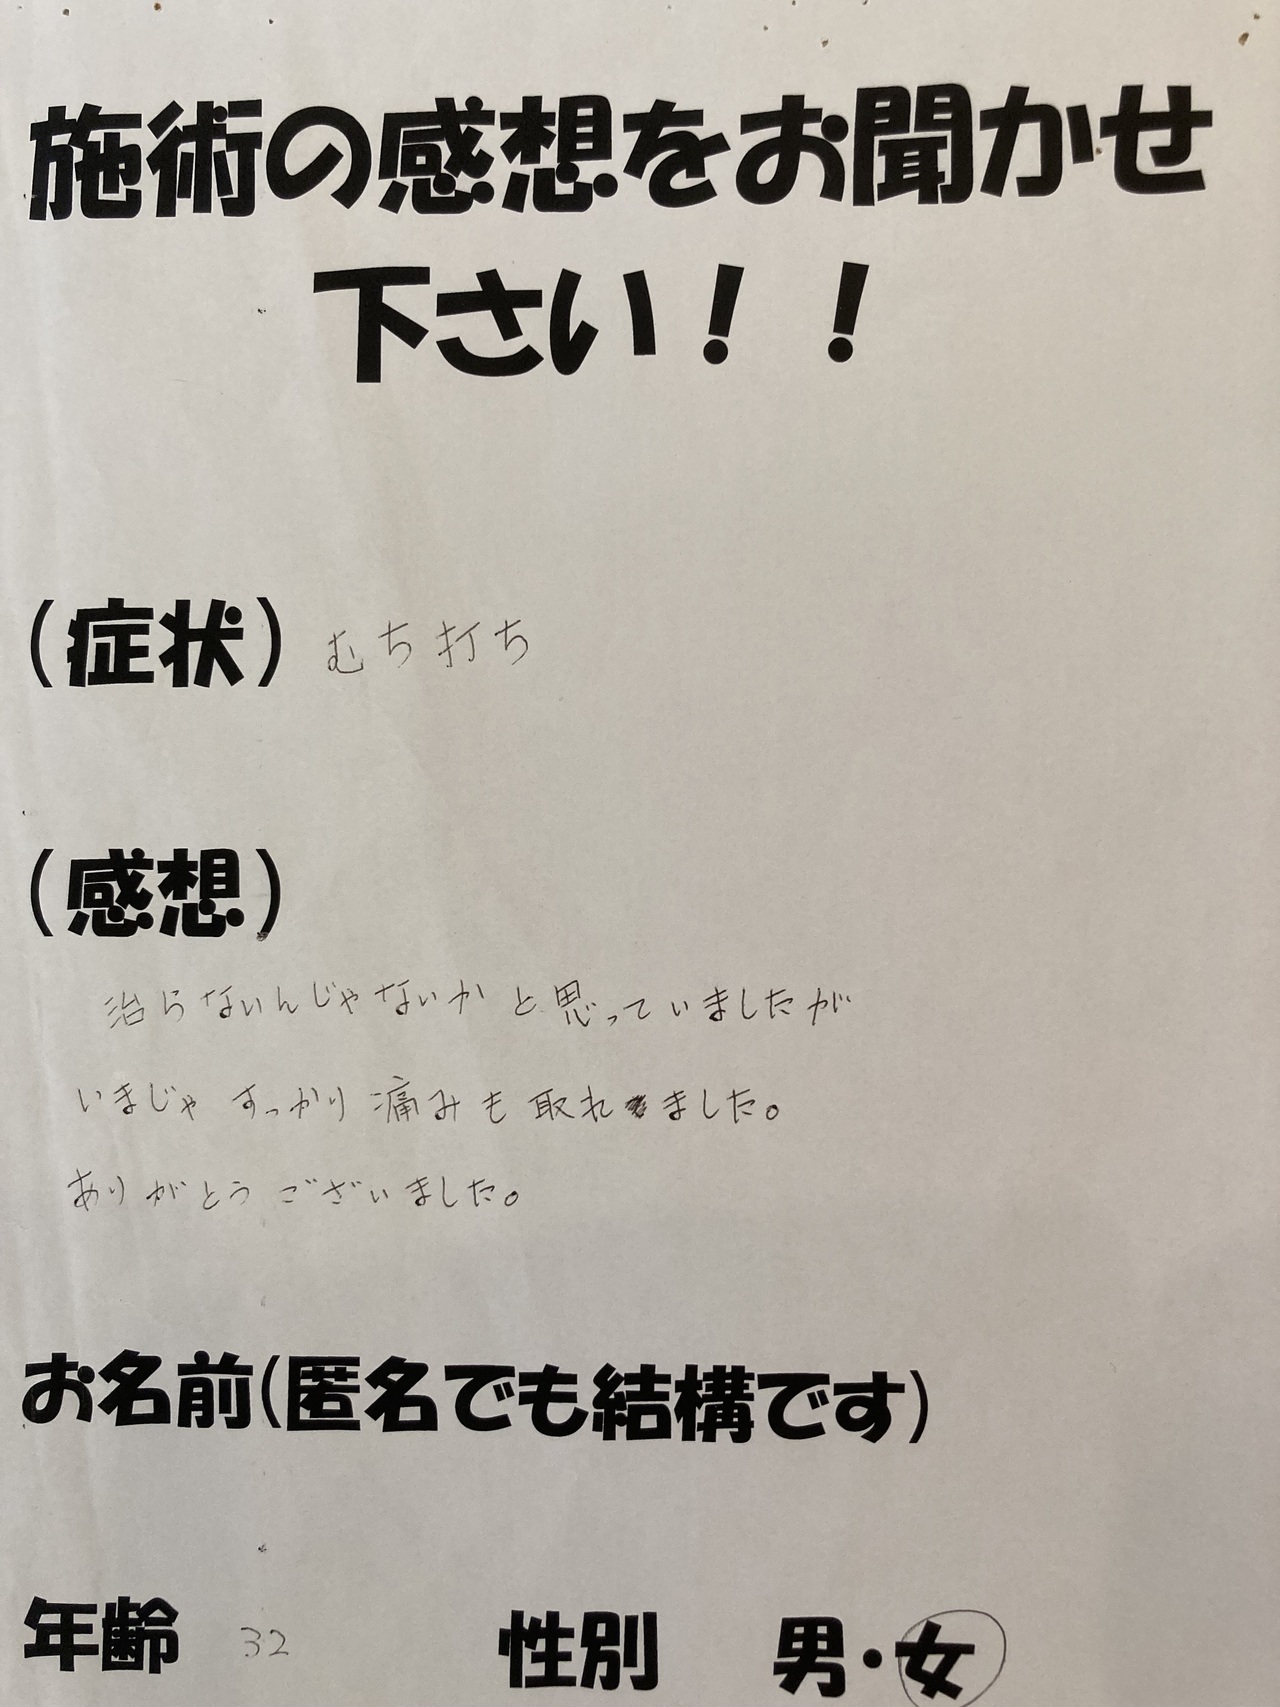 施術の感想をお聞かせ
下さい！！
(症状) むち打ち
(感想)
治らないんじゃないかと思っていましたが
いまじゃすっかり痛みも取れました。
ありがとうございました。
お名前(匿名でも結構です)
年齢 32 性別 男・女